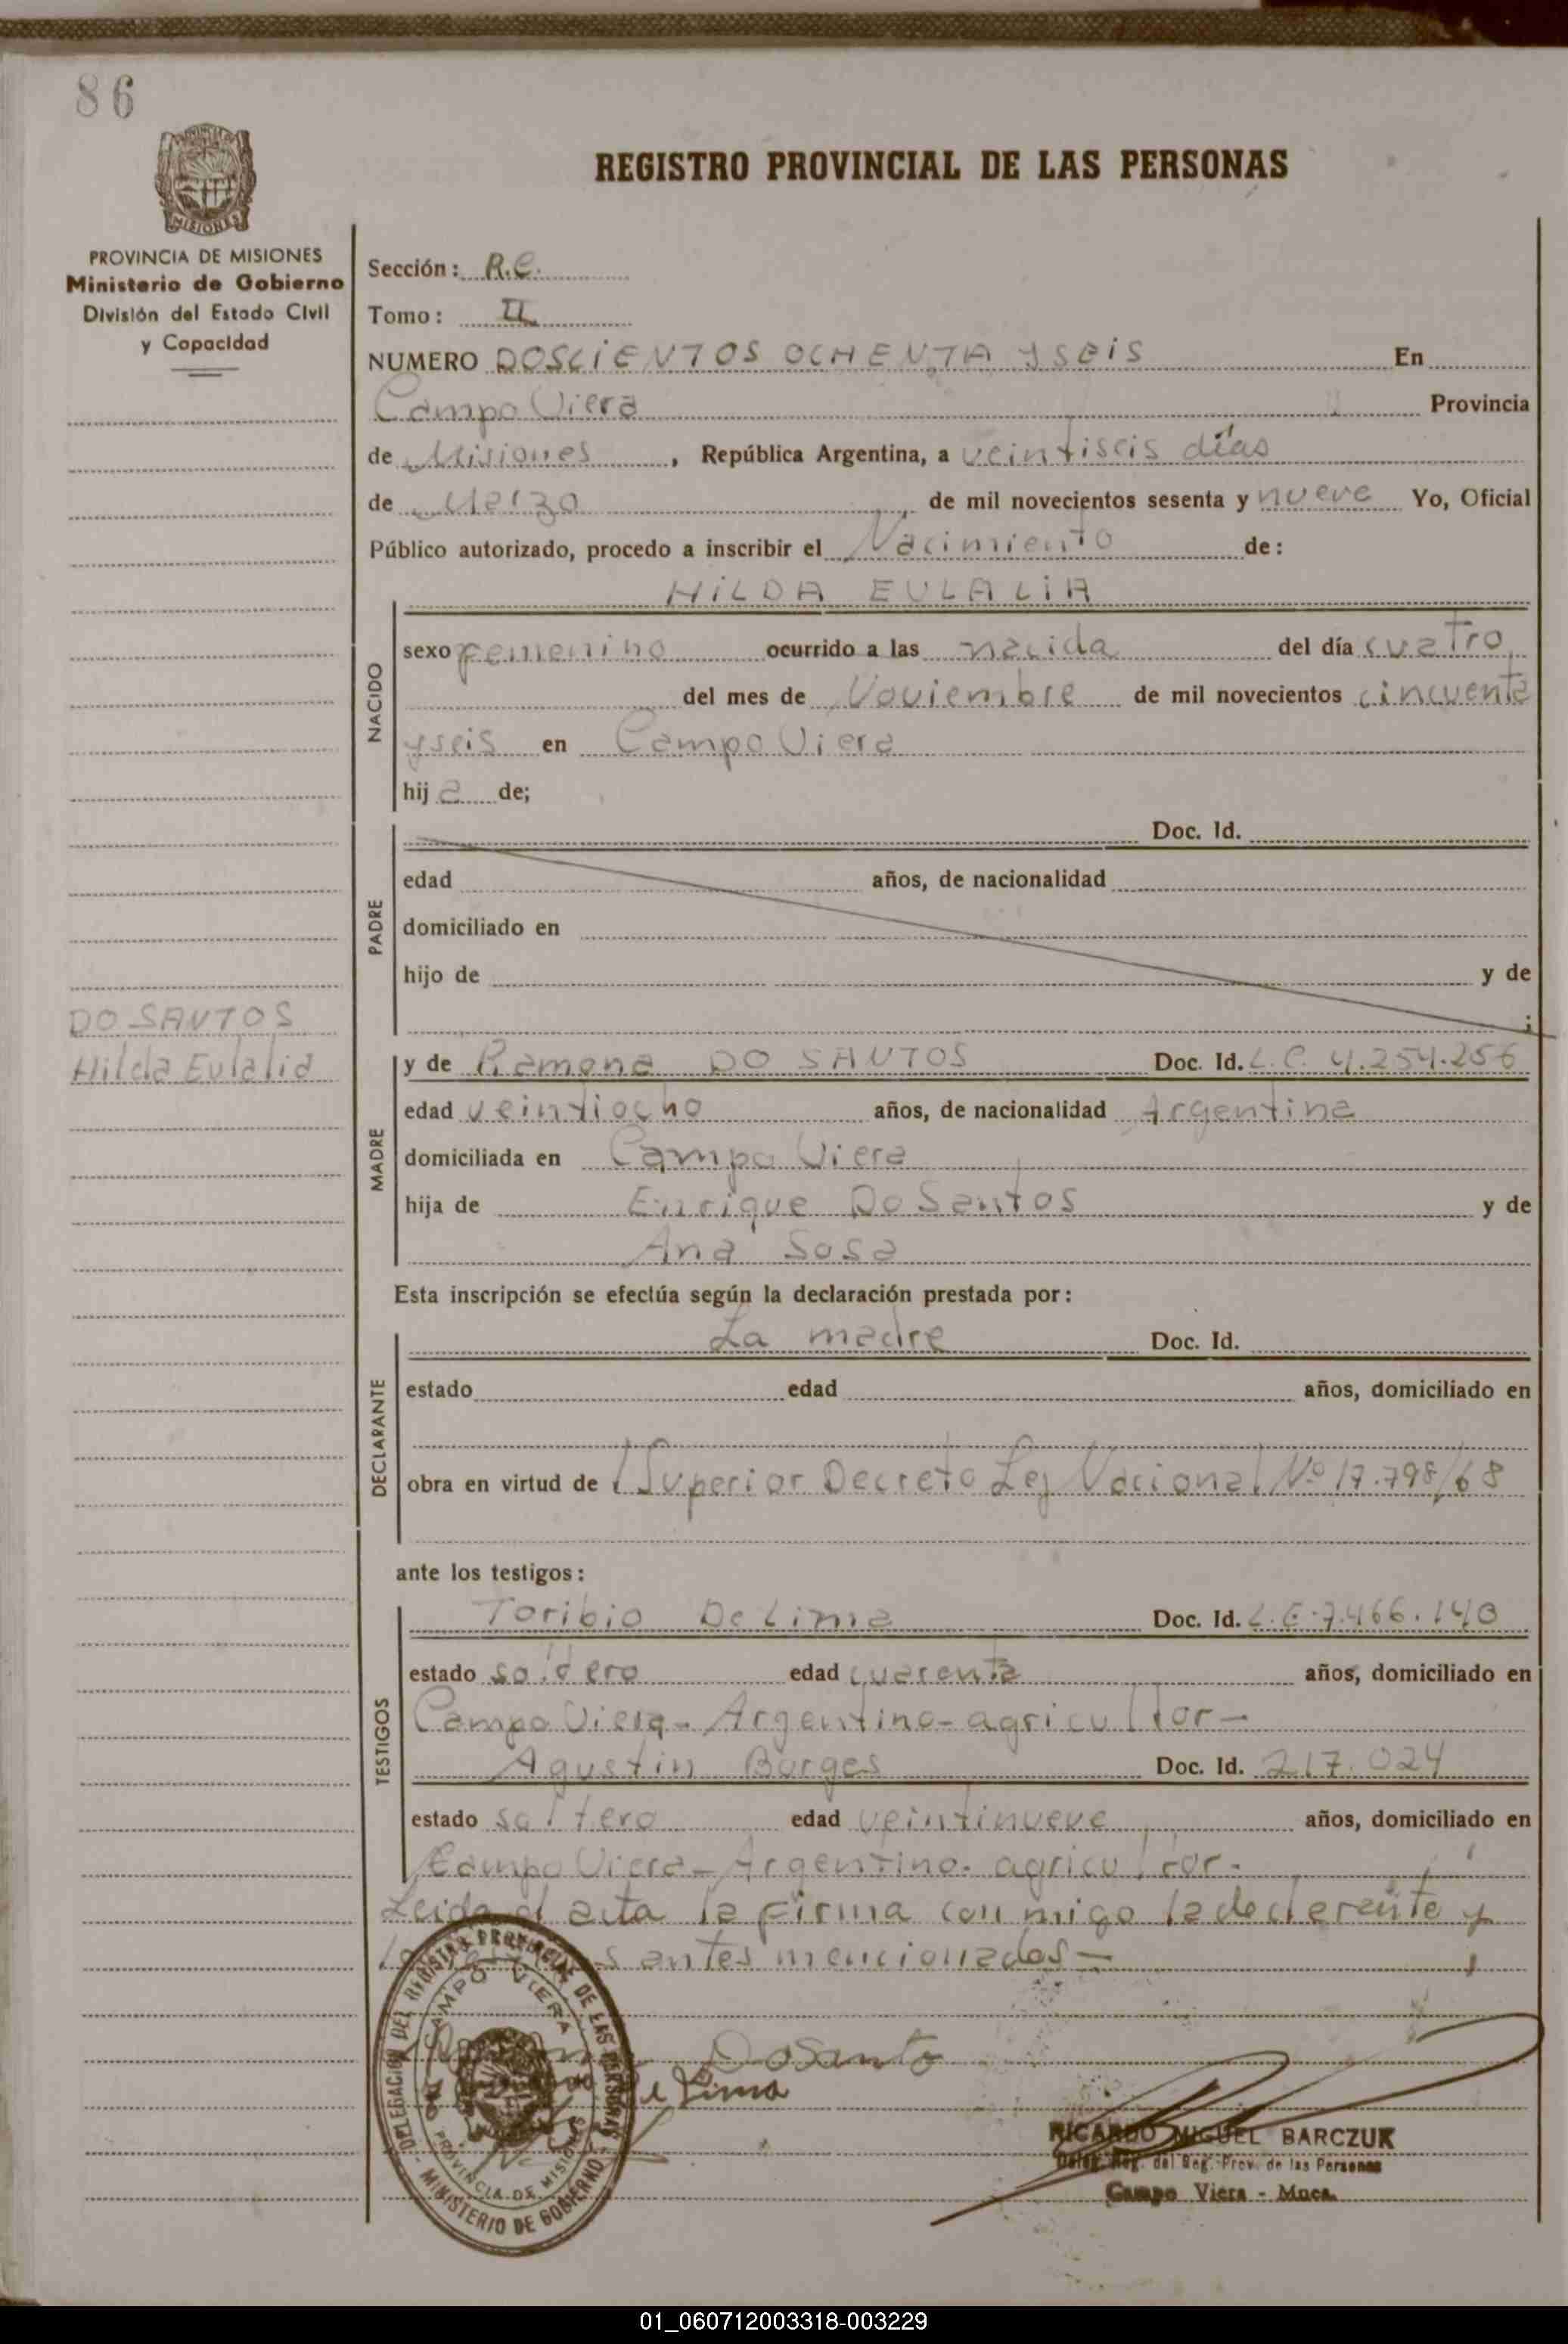 86
PROVINCIA DE MISIONES
Ministerio de Gobierno
División del Estado Civil
y Capacidad
REGISTRO PROVINCIAL DE LAS PERSONAS
Sección: R.C.
Tomo: II
NUMERO DOSCIENTOS OCHENTA Y SEIS En
Campo Viera Provincia
de Misiones, República Argentina, a veintiseis días
de Marzo de mil novecientos sesenta y nueve Yo, Oficial
Público autorizado, procedo a inscribir el Nacimiento de:
HILDA EULALIA
NACIDO
sexo femenino ocurrido a las nacida del día cuatro
del mes de Noviembre de mil novecientos cincuenta
y seis en Campo Viera
hij a de;
PADRE
Doc. Id.
edad años, de nacionalidad
domiciliado en
hijo de y de
;
DO SANTOS
Hilda Eulalia
MADRE
y de Ramona DO SANTOS Doc. Id. L.C. 4.254.256
edad veintiocho años, de nacionalidad Argentina
domiciliada en Campo Viera
hija de Enrique Do Santos y de
Ana Sosa
Esta inscripción se efectúa según la declaración prestada por:
DECLARANTE
La madre Doc. Id.
estado edad años, domiciliado en
obra en virtud de Superior Decreto Ley Nacional Nº 17.798/68
ante los testigos:
TESTIGOS
Toribio De Lima Doc. Id. L.E. 7.466.140
estado soltero edad cuarenta años, domiciliado en
Campo Viera - Argentino - agricultor -
Agustin Borges Doc. Id. 217.024
estado soltero edad veintinueve años, domiciliado en
Campo Viera - Argentino. agricultor -
Leida el acta la firma con migo la declarente y
antes mencionados -
DELEGACION DEL REGISTRO PROVINCIAL DE LAS PERSONAS
CAMPO VIERA
PROVINCIA DE MISIONES
MINISTERIO DE GOBIERNO
DoSanto
de Lima
RICARDO MIGUEL BARCZUK
Deleg. Reg. del Reg. Prov. de las Personas
Campo Viera - Mnes.
01_060712003318-003229